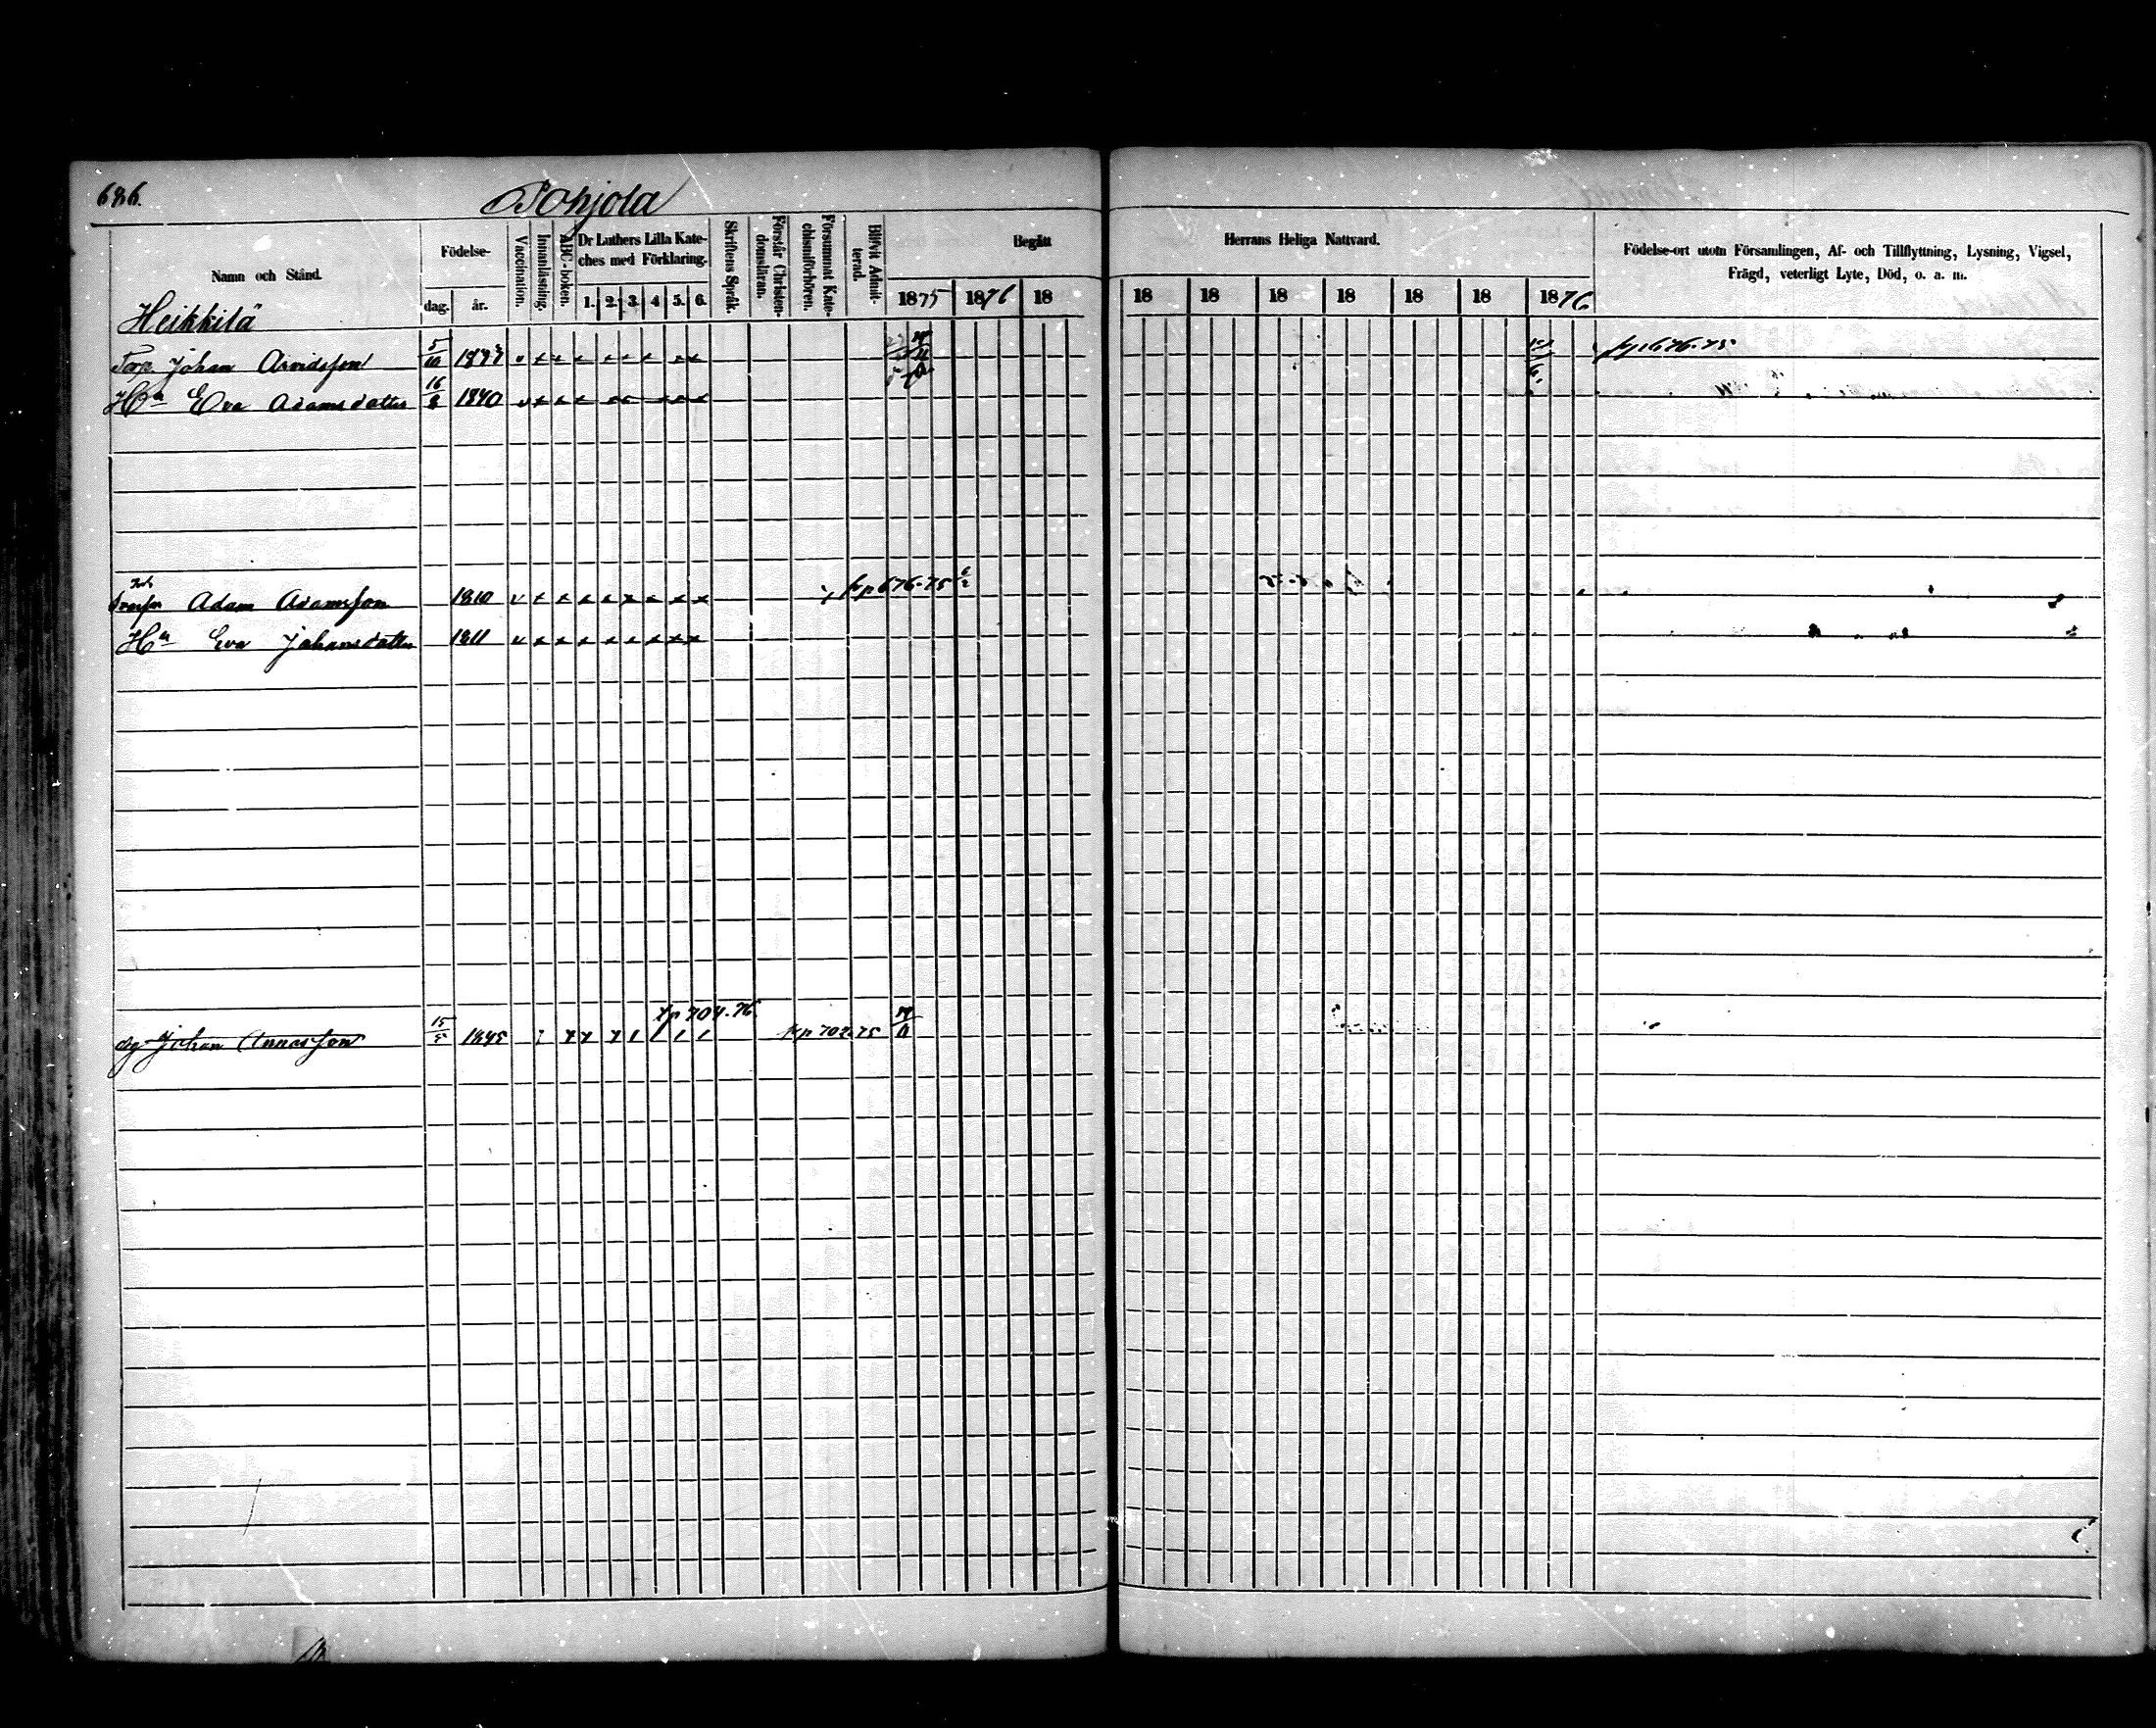 686.
Pohjola
Namn och Stånd.
Födelse-
dag.
år.
Vaccination.
Innanläsning.
ABC-boken.
Dr Luthers Lilla Kate-
ches med Förklaring.
1. 2. 3. 4 5. 6.
Skriftens Språk.
Förstår Christen-
domsläran.
Försummat Kate-
chismiförhören.
Blifvit Admit-
terad.
Begått
1875 1876 18
Herrans Heliga Nattvard.
18 18 18 18 18 18 1876
Födelse-ort utom Församlingen, Af- och Tillflyttning, Lysning, Vigsel,
Frägd, veterligt Lyte, Död, o. a. m.
Heikkilä
Torp. Johan Arvidsson 5/10 fr p 676-75
Hu Eva Adamsdotter 16/8 1840
Adam Adamsson 1810 fr p 676-75
Hu Eva Johansdotter 1811
tp 704.76
drg Johan Annasson 15/5 1845 fr p 702.75